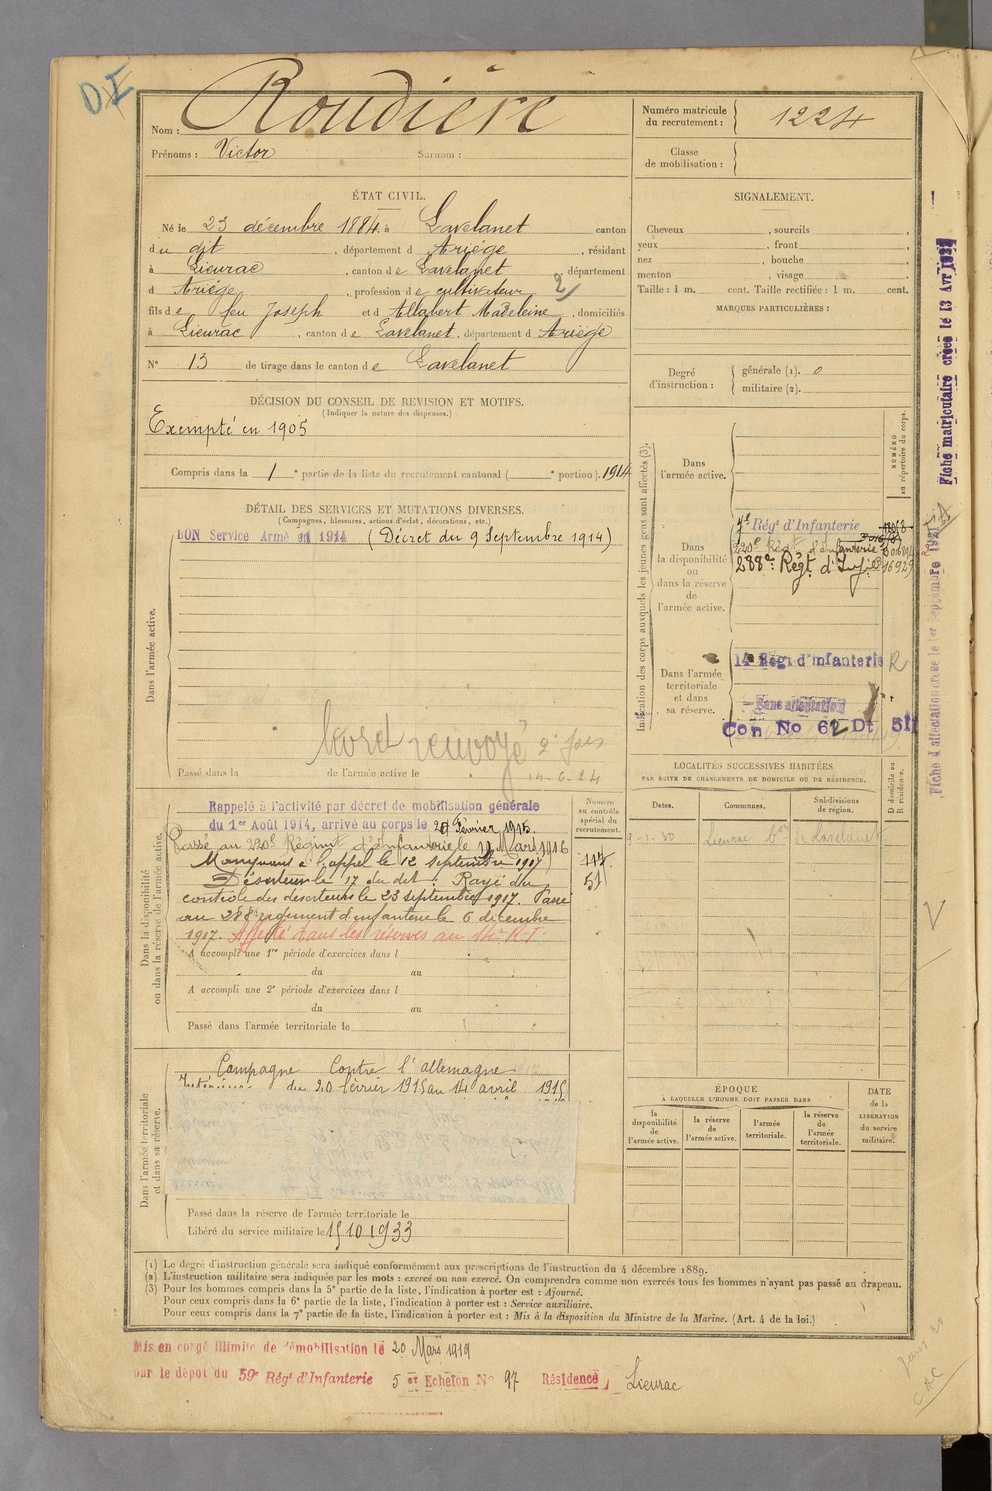 Nom : Roudière
Prénoms : Victor Surnom :
Numéro matricule du recrutement : 1224
Classe de mobilisation :
ÉTAT CIVIL.
Né le 23 décembre 1884 à Lavelanet canton
du dit, département d Ariège, résidant
à Lieurac, canton de Lavelanet, département
d Ariège, profession de cultivateur 2
fils de feu Joseph et d Allabert Madeleine, domiciliés
à Lieurac, canton de Lavelanet, département d Ariège
N° 13 de tirage dans le canton de Lavelanet
SIGNALEMENT.
Cheveux , sourcils ,
yeux , front ,
nez , bouche ,
menton , visage
Taille : 1 m. cent. Taille rectifiée : 1 m. cent.
MARQUES PARTICULIÈRES :
Degré d'instruction : générale (1). 0
militaire (2).
DÉCISION DU CONSEIL DE REVISION ET MOTIFS.
(Indiquer la nature des dispenses.)
Exempté en 1905
Compris dans la 1e partie de la liste du recrutement cantonal ( e portion). 1914
DÉTAIL DES SERVICES ET MUTATIONS DIVERSES.
(Campagnes, blessures, actions d'éclat, décorations, etc.)
Dans l'armée active.
BON Service Armé en 1914 (Décret du 9 Septembre 1914)
renvoyé 2 fois
Passé dans la de l'armée active le
Indication des corps auxquels les jeunes gens sont affectés (3).
NUMÉRO au répertoire du corps.
Dans l'armée active.
Dans la disponibilité ou dans la réserve de l'armée active.
Régt d'Infanterie
220e Régt d'Infanterie
288e Régt d'Inf ie 16929
Dans l'armée territoriale et dans sa réserve.
14 Régt d'Infanterie R
Sans affectation
Con No 62 Dt 511
Fiche matriculaire créée le 13 Avr
Fiche d'affectation créée le 1er Septembre 192
Dans la disponibilité ou dans la réserve de l'armée active.
Rappelé à l'activité par décret de mobilisation générale
du 1er Août 1914, arrivé au corps le 20 Février 1915.
Passé au 220e Régiment d'Infanterie le 11 Mars 1916
Manquant à l'appel le 12 septembre 1917
Déserteur le 17 du dit. Rayé du
contrôle des deserteurs le 23 septembre 1917. Passé
au 288e regiment d'infanterie le 6 décembre
1917. Affecté dans les réserves au 14e R.I.
Numéro au contrôle spécial du recrutement.
A accompli une 1re période d'exercices dans l
du au
A accompli une 2e période d'exercices dans l
du au
Passé dans l'armée territoriale le
Dans l'armée territoriale et dans sa réserve.
Campagne Contre l'allemagne
Intérieur du 20 février 1915 au 14 avril 1915
Passé dans la réserve de l'armée territoriale le
Libéré du service militaire le 15 10 1933
LOCALITÉS SUCCESSIVES HABITÉES
PAR SUITE DE CHANGEMENTS DE DOMICILE OU DE RÉSIDENCE.
Dates. Communes. Subdivisions de région. D domicile ou R résidence.
Lieurac de Lavelanet
ÉPOQUE
À LAQUELLE L'HOMME DOIT PASSER DANS
la disponibilité de l'armée active. la réserve de l'armée active. l'armée territoriale. la réserve de l'armée territoriale.
DATE de la LIBÉRATION du service militaire.
(1) Le degré d'instruction générale sera indiqué conformément aux prescriptions de l'instruction du 4 décembre 1889.
(2) L'instruction militaire sera indiquée par les mots : exercé ou non exercé. On comprendra comme non exercés tous les hommes n'ayant pas passé au drapeau.
(3) Pour les hommes compris dans la 5e partie de la liste, l'indication à porter est : Ajourné.
Pour ceux compris dans la 6e partie de la liste, l'indication à porter est : Service auxiliaire.
Pour ceux compris dans la 7e partie de la liste, l'indication à porter est : Mis à la disposition du Ministre de la Marine. (Art. 4 de la loi.)
Mis en congé illimité de démobilisation le 20 Mars 1919
par le dépot du 59e Régt d'Infanterie 5 er Echelon N° 97 Résidence Lieurac